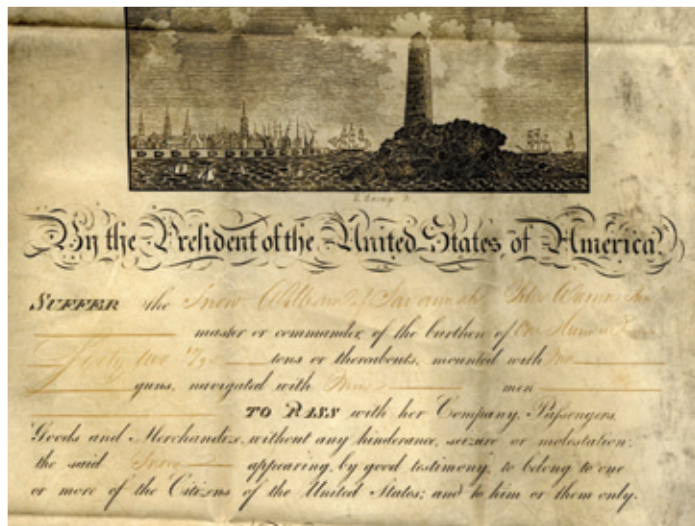 By the President of the United States of America.
SUFFER the Snow William of Savannah Peter
master or commander, of the burthen of One Hundred
Forty two tons or thereabouts, mounted with no
guns, navigated with Nine men
TO PASS with her Company, Passengers,
Goods and Merchandize, without any hinderance, seizure or molestation:
the said Snow appearing, by good testimony, to belong to one
or more of the Citizens of the United States; and to him or them only.